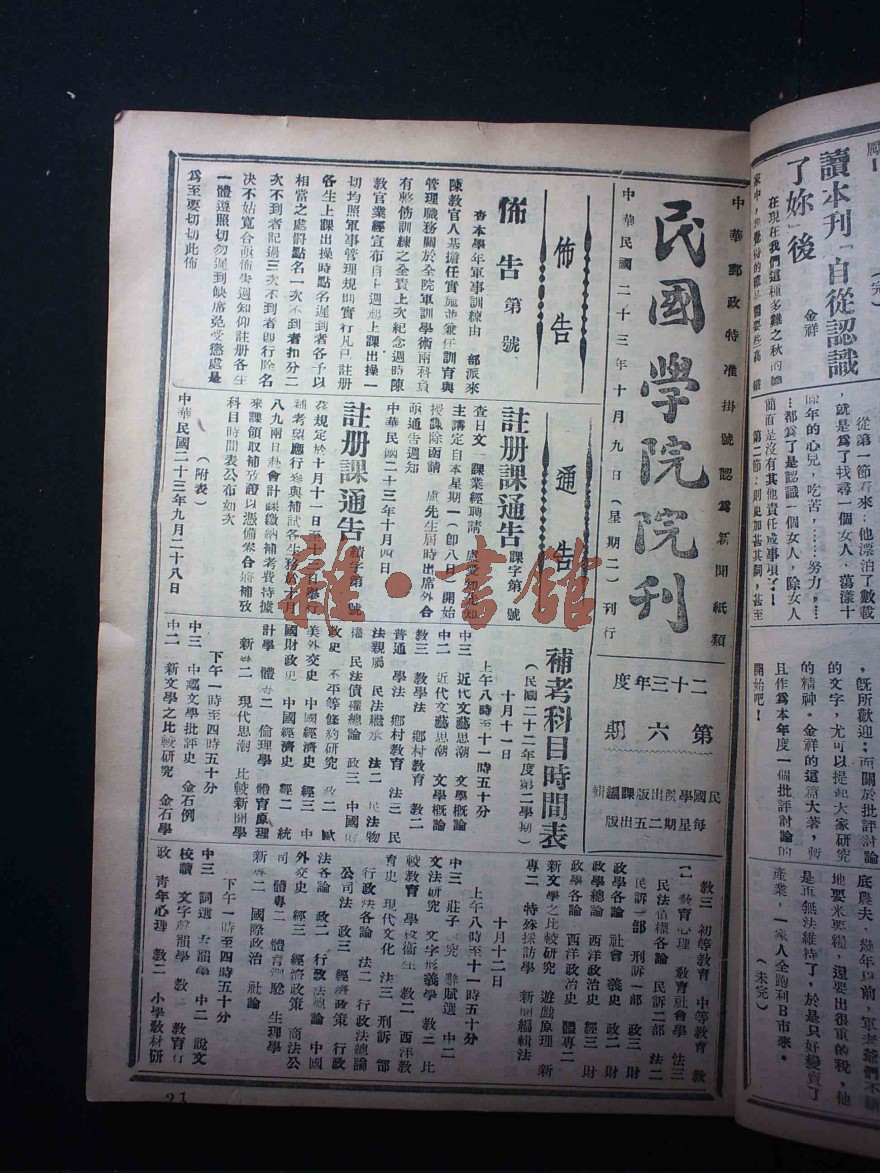 民國學院院刊
中華郵政特准掛號認為新聞紙類
中華民國二十三年十月九日（星期二）刊行
二十三年度
第六期
民國學院出版課編輯
每星期二五出版
佈告
佈告 第 號
查本學年軍事訓練由 部派來
陳教官人基擔任實施並兼任訓育與
管理職務關於全院軍訓學術兩科負
有整飭訓練之全責上次紀念週時陳
教官業經宣布自上週起上課出操一
切均照軍事管理規則實行凡已註冊
各生上課出操時點名遲到者各予以
相當之處罰點名一次不到者扣分二
次不到者記過三次不到者即行除名
決不姑寬合亟佈告週知仰註册各生
一體遵照切勿遲到缺席免受懲處是
為至要切切此佈
通告
註册課通告 課字第 號
查日文一課業經聘請
主講定自本星期一（卽八日）開始
授課除函請 盧先生屆時出席外合
亟通告週知
中華民國二十三年十月四日
註册課通告 績字第 號
茲規定於十月十一日至十 日舉行
補考望應行參與補試各生務於十月
八九兩日赴會計課繳納補考費持據
來課領取補攷證以憑備案合將補攷
科目時間表公布如次
（附表）
中華民國二十三年九月二十八日
補考科目時間表
（民國二十二年度第二學期）
十月十一日
上午八時至十一時五十分
中三 近代文藝思潮 文學概論
中二 近代文藝思潮 文學概論
教三 教學法 鄉村教育 教二
普通 學法 鄉村教育 法三 民
法親屬 民法繼承 法二 民法物
權 民法債權總論 政三 中國財
政史 不平等條約研究 政二 歐
美外交史 中國經濟史 經三 中
國財政史 中國經濟史 經二 統
計學 體專二 倫理學 體育原理
新專二 現代思潮 比較新聞學
下午一時至四時五十分
中三 中國文學批評史 金石例
中二 新文學之比較研究 金石學
教三 初等教育 中等教育 教
二 教育心理 教育社會學 法三
民法債權各論 民訴二部 法二
民訴一部 刑訴一部 政三 財
政學各論 社會主義史 政二 財
政學總論 西洋政治史 經三 財
政學各論 西洋政治史 體專二
新文學之比較研究 遊戲原理 新
專二 特殊採訪學 新聞編輯法
十月十二日
上午八時至十一時五十分
中三 莊子研究 辭賦選 中二
文法研究 文字形義學 教三 比
較教育 學校衛生 教二 西洋教
育史 現代文化 法三 刑訴 部
行政法各論 法二 行政法總論
公司法 政三 經濟政策 行政
法各論 政二 行政法總論 中國
外交史 經三 經濟政策 商法公
司 體專二 體育測驗 生理學
新專二 國際政治 社論
下午一時至四時五十分
中三 詞選 古韻學 中二 說文
校讀 文字聲韻學 教三 教育行
政 青年心理 教二 小學教材研
21
雜·書館
讀本刊「自從認識
了妳」後
金祥
在現在我們這種多難之秋的國
（完）
從第一節看來：他漂泊了數載
，就是為了找尋一個女人，蕩漾十
餘年的心兒，吃苦，……努力，…
…都為了是認識一個女人，除女人
簡直是沒有其他責任或事項了！
第二節：則更加甚其詞，甚至
，旣所歡迎；而關於批評討論
的文字，尤可以提起大家研究
的精神。金祥的這篇大著，暫
且作為本年度一個批評討論的
開始吧！
底農夫，幾年以前，軍老爺們不斷
地要米要糧，還要出很重的稅，他
是再無法維持了，於是只好變賣了
產業，一家人全跑到B市來。
（未完）